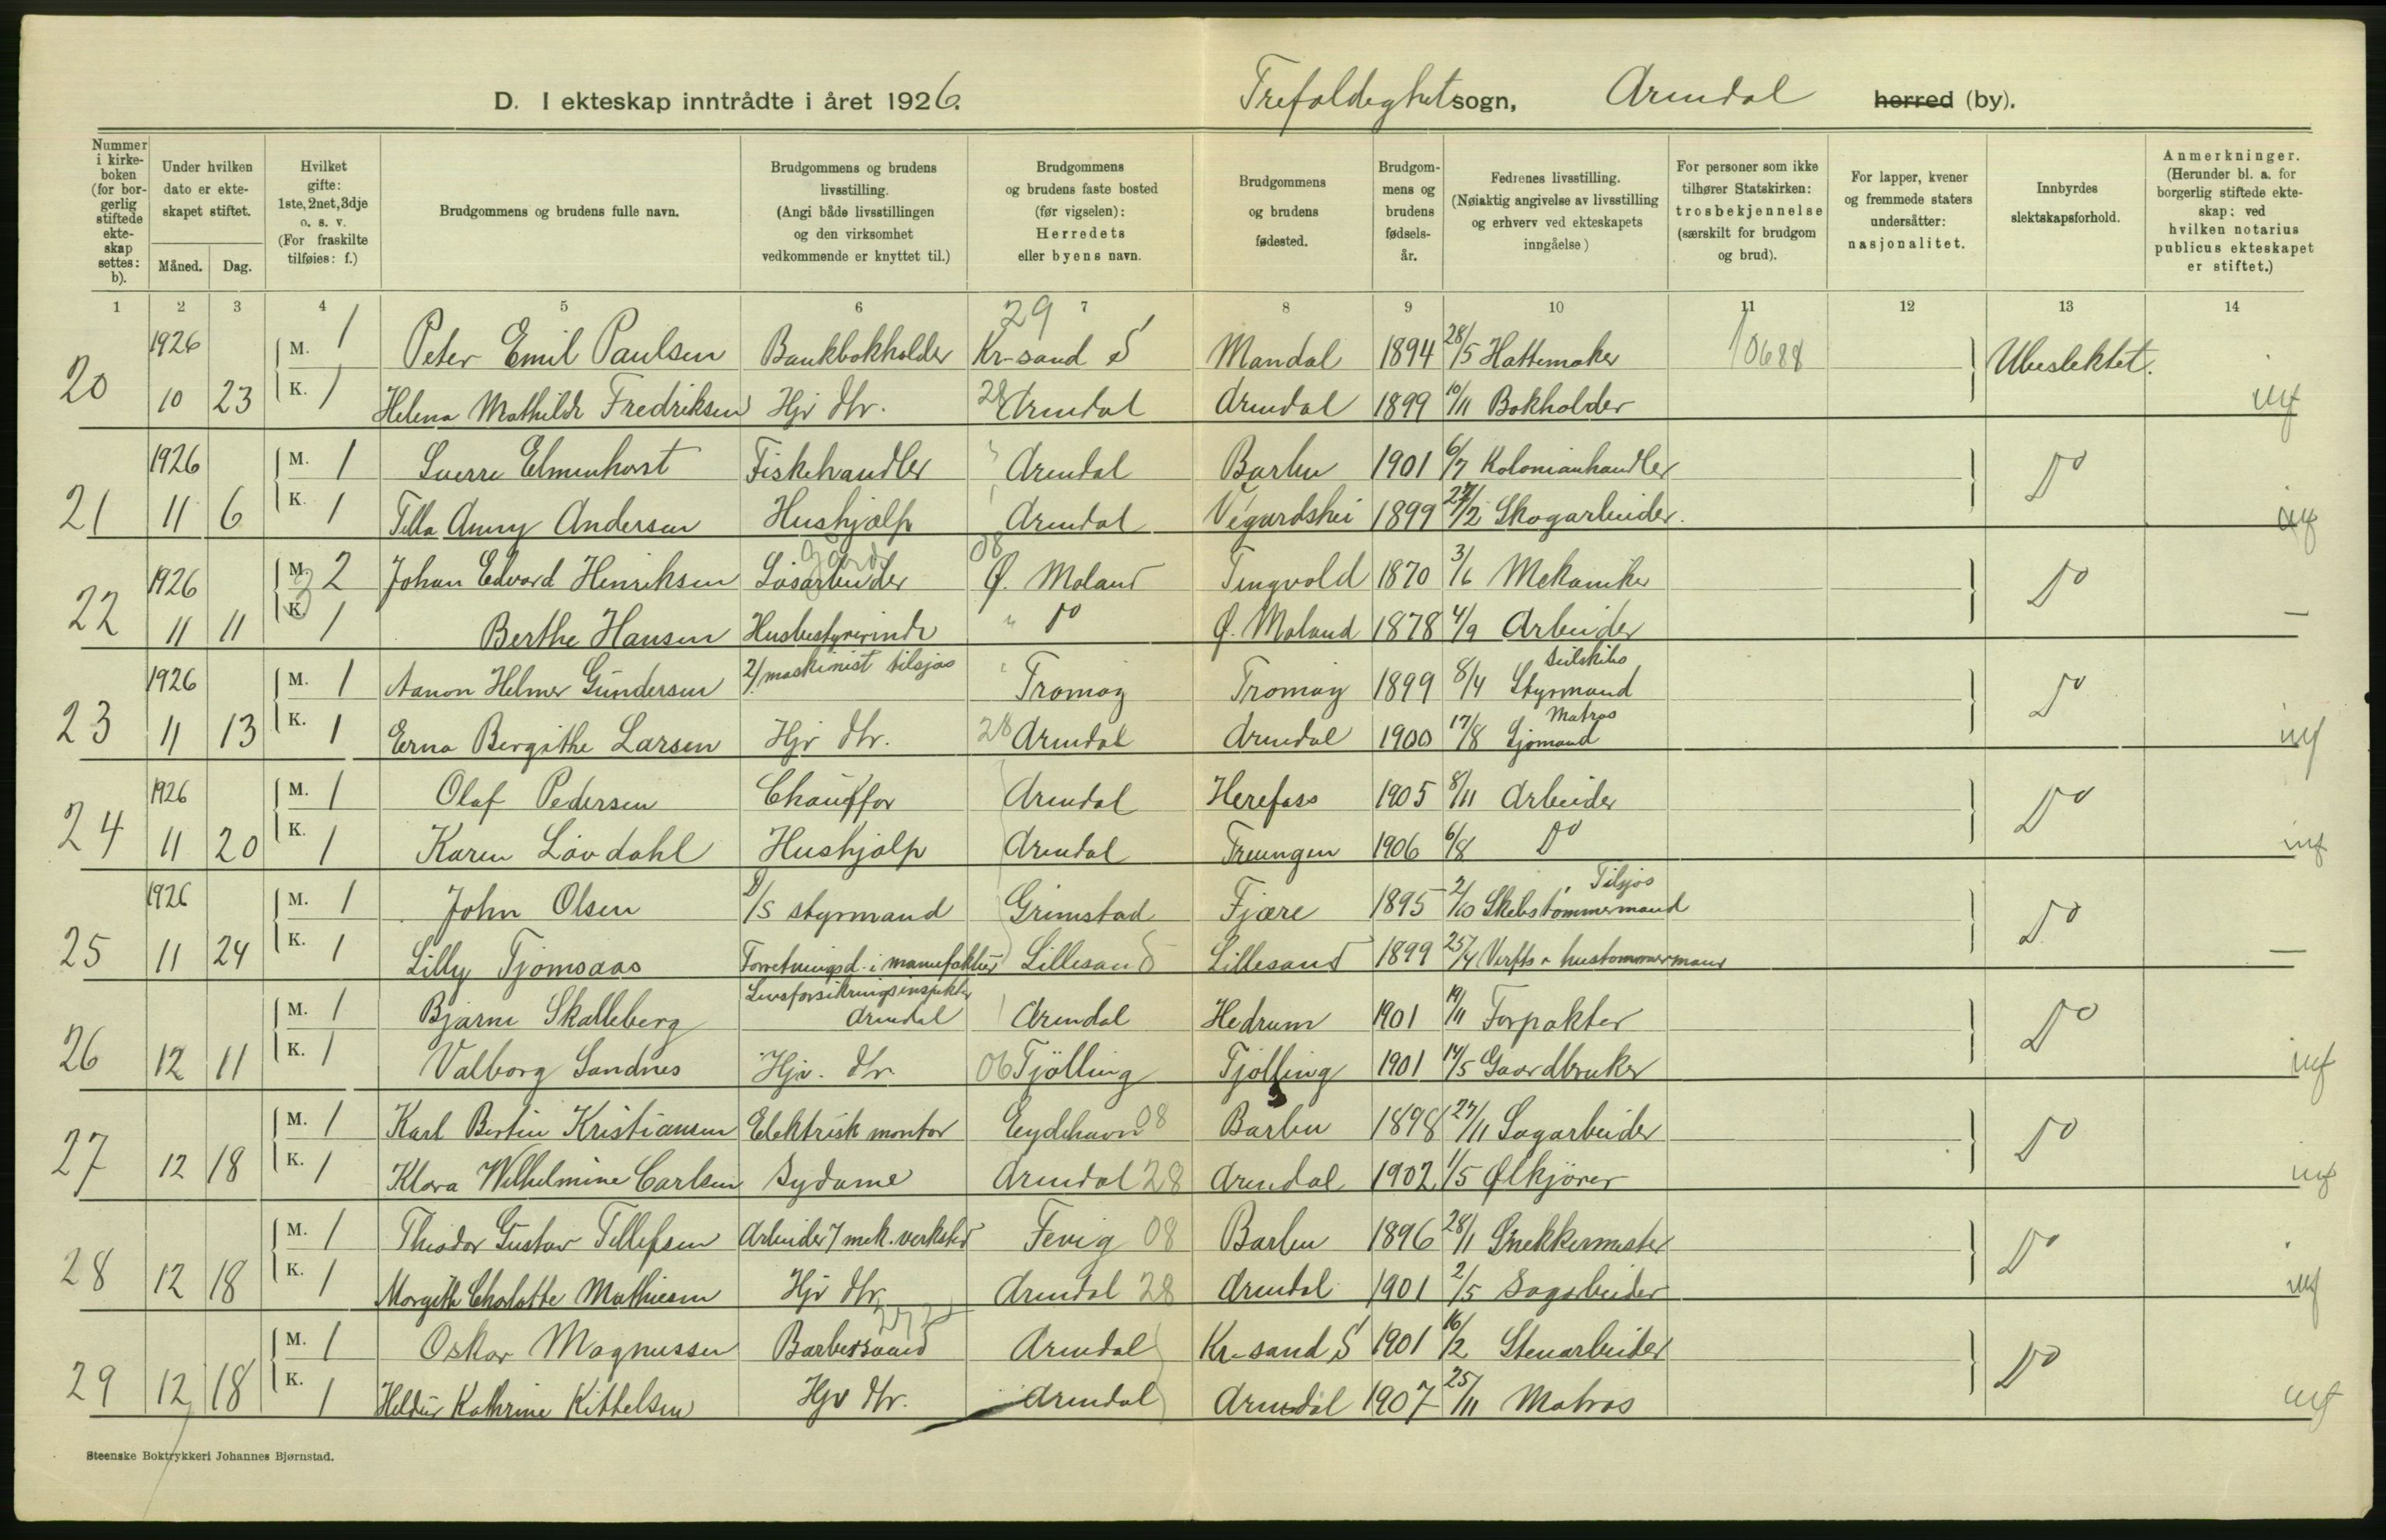 D. I ekteskap inntrådte i året 1926. Trefoldeghetsogn, Arendal herred (by).
Nummer i kirkeboken (for borgerlig stiftede ekteskap settes: b).
Under hvilken dato er ekteskapet stiftet.
Måned. Dag.
Hvilket gifte: 1ste, 2net, 3dje o. s. v. (For fraskilte tilføies: f.)
Brudgommens og brudens fulle navn.
Brudgommens og brudens livsstilling. (Angi både livsstillingen og den virksomhet vedkommende er knyttet til.)
Brudgommens og brudens faste bosted (før vigselen): Herredets eller byens navn.
Brudgommens og brudens fødested.
Brudgommens og brudens fødselsår.
Fedrenes livsstilling. (Nøiaktig angivelse av livsstilling og erhverv ved ekteskapets inngåelse)
For personer som ikke tilhører Statskirken: trosbekjennelse (særskilt for brudgom og brud).
For lapper, kvener og fremmede staters undersåtter: nasjonalitet.
Innbyrdes slektskapsforhold.
Anmerkninger. (Herunder bl. a. for borgerlig stiftede ekteskap: ved hvilken notarius publicus ekteskapet er stiftet.)
1 2 3 4 5 6 7 8 9 10 11 12 13 14
20 1926 M. 1 Peter Emil Paulsen Bankbokholder 29 Kr-sand S Mandal 1894 28/5 Hattemaker 10688 Ubeslektet.
10 23 K. 1 Helena Mathilde Fredriksen Hjv dtr. 28 Arendal Arendal 1899 10/11 Bokholder
21 1926 M. 1 Sverre Elmenhorst Fiskehandler Arendal Barbu 1901 6/7 Kolonianhandler Do
11 6 K. 1 Tella Anny Andersen Hushjælp Arendal Vegardshei 1899 27/2 Skogarbeider.
22 1926 M. 2 Johan Edvard Henriksen Løsarbeider 08 Ø. Moland Tingvold 1870 3/6 Mekaniker Do
11 11 K. 1 Berthe Hansen Husbestyrerinde " Do Ø. Moland 1878 4/9 Arbeider
23 1926 M. 1 Aanon Helmer Gundersen 2/ maskinist tilsjøs Tromøy Tromøy 1899 8/4 Styrmand Seilskibs Do
11 13 K. 1 Erna Bergithe Larsen Hjv dtr. 28 Arendal Arendal 1900 17/8 Sjømand Matros
24 1926 M. 1 Olaf Pedersen Chauffør Arendal Herefoss 1905 8/11 Arbeider Do
11 20 K. 1 Karen Løvdahl Hushjælp Arendal Treungen 1906 6/8 Do
25 1926 M. 1 John Olsen D/S styrmand Grimstad Fjære 1895 2/10 Skibstømmermand Tilsjøs Do
11 24 K. 1 Lilly Tjomsaas Forretningsd. i manufaktur Lillesand Lillesand 1899 25/4 Verfts & hustømmermand
26 M. 1 Bjarne Skalleberg Livsforsikringsinspektør Arendal Arendal Hedrum 1901 19/11 Forpakter Do
12 11 K. 1 Valborg Sandnes Hjv. dtr 06 Tjølling Tjølling 1901 14/5 Gaardbruker
27 M. 1 Karl Bertin Kristiansen Elektrisk montør Eydehavn 08 Barbu 1898 27/11 Sagarbeider Do
12 18 K. 1 Klara Wilhelmine Carlsen Sydame Arendal 28 Arendal 1902 1/5 Ølkjører
28 M. 1 Theodor Gustav Tellefsen Arbeider / mek. verksted Fevig 08 Barbu 1896 28/11 Snekkermester Do
12 18 K. 1 Margith Charlotte Mathiesen Hjv dtr Arendal 28 Arendal 1901 2/5 Sagarbeider
29 M. 1 Oskar Magnussen Barbersvend Arendal Kr-sand S 1901 16/2 Stenarbeider Do
12 18 K. 1 Heldur Kathrine Kittelsen Hjv dtr. Arendal Arendal 1907 25/11 Matros
Steenske Boktrykkeri Johannes Bjørnstad.